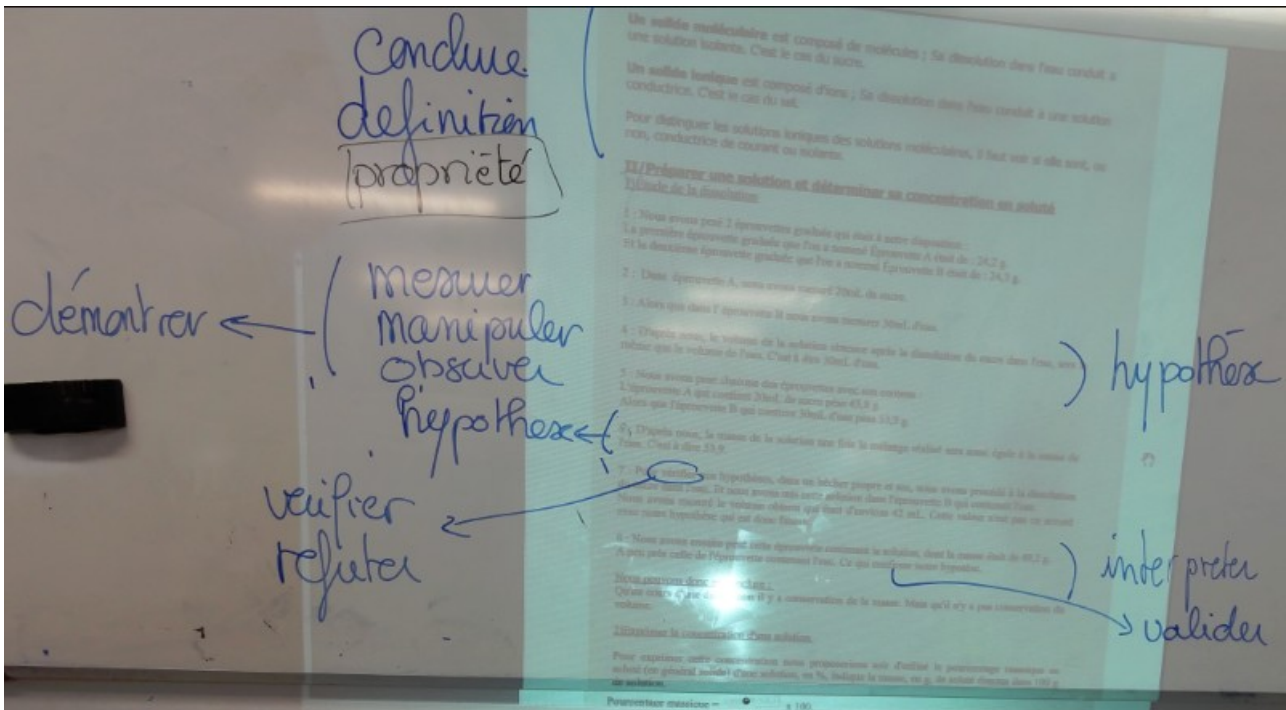 Conclure
definition
propriété
démontrer
mesurer
manipuler
observer
hypothèse
verifier
refuter
hypothèse
interpreter
valider
Un solide moléculaire est composé de molécules ; Sa dissolution dans l'eau conduit à
une solution isolante. C'est le cas du sucre.
Un solide ionique est composé d'ions ; Sa dissolution dans l'eau conduit à une solution
conductrice. C'est le cas du sel.
Pour distinguer les solutions ioniques des solutions moléculaires, il faut voir si elle sont, ou
non, conductrice de courant ou isolante.
II/Préparer une solution et déterminer sa concentration en soluté
1)Etude de la dissolution
1 : Nous avons pesé 2 éprouvettes graduée qui était à notre disposition :
La première éprouvette graduée que l'on a nommé Éprouvette A était de : 24,2 g.
Et la deuxième éprouvette graduée que l'on a nommé Éprouvette B était de : 24,3 g.
2 : Dans éprouvette A, nous avons mesuré 20mL de sucre.
3 : Alors que dans l'éprouvette B nous avons mesurer 30mL d'eau.
4 : D'après nous, le volume de la solution obtenue après la dissolution du sucre dans l'eau, sera
même que le volume de l'eau. C'est à dire 30mL d'eau.
5 : Nous avons peser chacune des éprouvettes avec son contenu :
L'éprouvette A qui contient 20mL de sucre pèse
Alors que l'éprouvette B qui contient 30mL d'eau pèse
6 : D'après nous, la masse de la solution une fois le mélange réalisé sera aussi égale à la masse de
l'eau. C'est à dire
7 : Pour vérifier hypothèses, dans un bécher propre et sec, nous avons procédé à la dissolution
du sucre dans l'eau. Et nous avons mis cette solution dans l'éprouvette B qui contenait l'eau.
Nous avons mesuré le volume obtenu qui était d'environ 42 mL. Cette valeur n'est pas en accord
avec notre hypothèse qui est donc fausse.
8 : Nous avons ensuite pesé cette éprouvette contenant la solution, dont la masse était de
A peu près celle de l'éprouvette contenant l'eau. Ce qui confirme notre hypothèse.
Nous pouvons donc
Qu'au cours d'une il y a conservation de la masse. Mais qu'il n'y a pas conservation du
volume.
2)Exprimer la concentration d'une solution.
Pour exprimer cette concentration nous proposerions soit d'utiliser le pourcentage massique en
soluté (en général solide) d'une solution, en %, indique la masse, en g, de soluté dissous dans 100 g
de solution.
Pourcentage massique = x 100